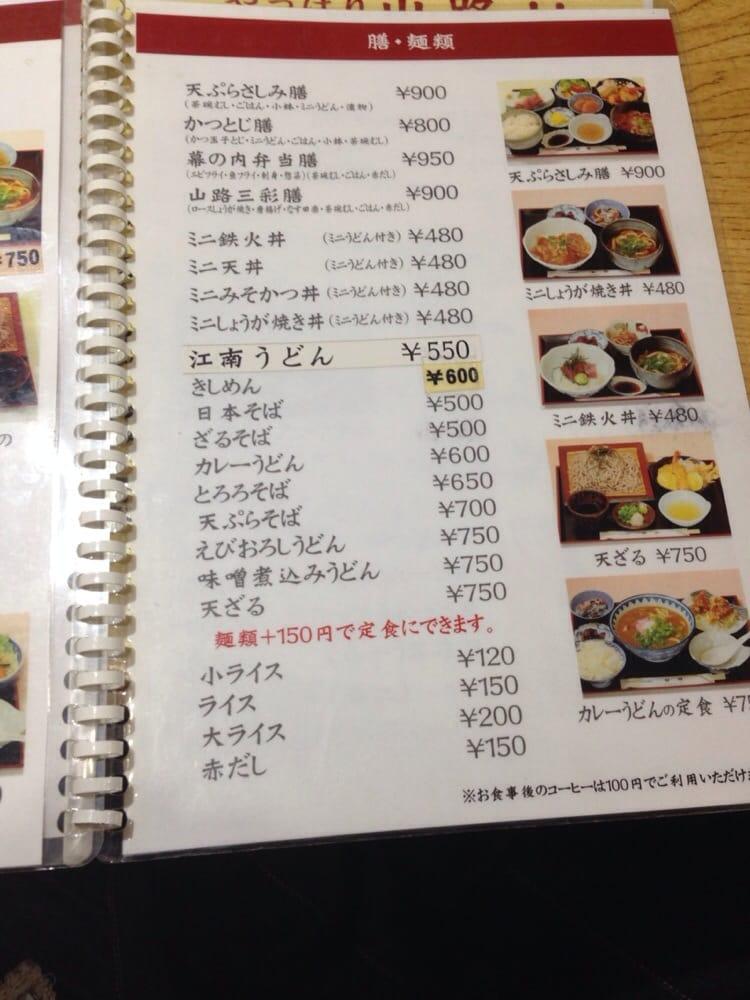 膳・麺類
天ぷらさしみ膳 ¥900
(茶碗むし・ごはん・小鉢・ミニうどん・漬物)
かつとじ膳 ¥800
(かつ玉子とじ・ミニうどん・ごはん・小鉢・茶碗むし)
幕の内弁当膳 ¥950
(エビフライ・魚フライ・刺身・惣菜)(茶碗むし・ごはん・赤だし)
山路三彩膳 ¥900
(ロースしょうが焼き・唐揚げ・なす田楽・茶碗むし・ごはん・赤だし)
ミニ鉄火丼 (ミニうどん付き) ¥480
ミニ天丼 (ミニうどん付き) ¥480
ミニみそかつ丼 (ミニうどん付き) ¥480
ミニしょうが焼き丼 (ミニうどん付き) ¥480
江南うどん ¥550
きしめん ¥600
日本そば ¥500
ざるそば ¥500
カレーうどん ¥600
とろろそば ¥650
天ぷらそば ¥700
えびおろしうどん ¥750
味噌煮込みうどん ¥750
天ざる ¥750
麺類+150円で定食にできます。
小ライス ¥120
ライス ¥150
大ライス ¥200
赤だし ¥150
天ぷらさしみ膳 ¥900
ミニしょうが焼き丼 ¥480
ミニ鉄火丼 ¥480
天ざる ¥750
カレーうどんの定食 ¥7
※お食事後のコーヒーは100円でご利用いただけ
¥750
の